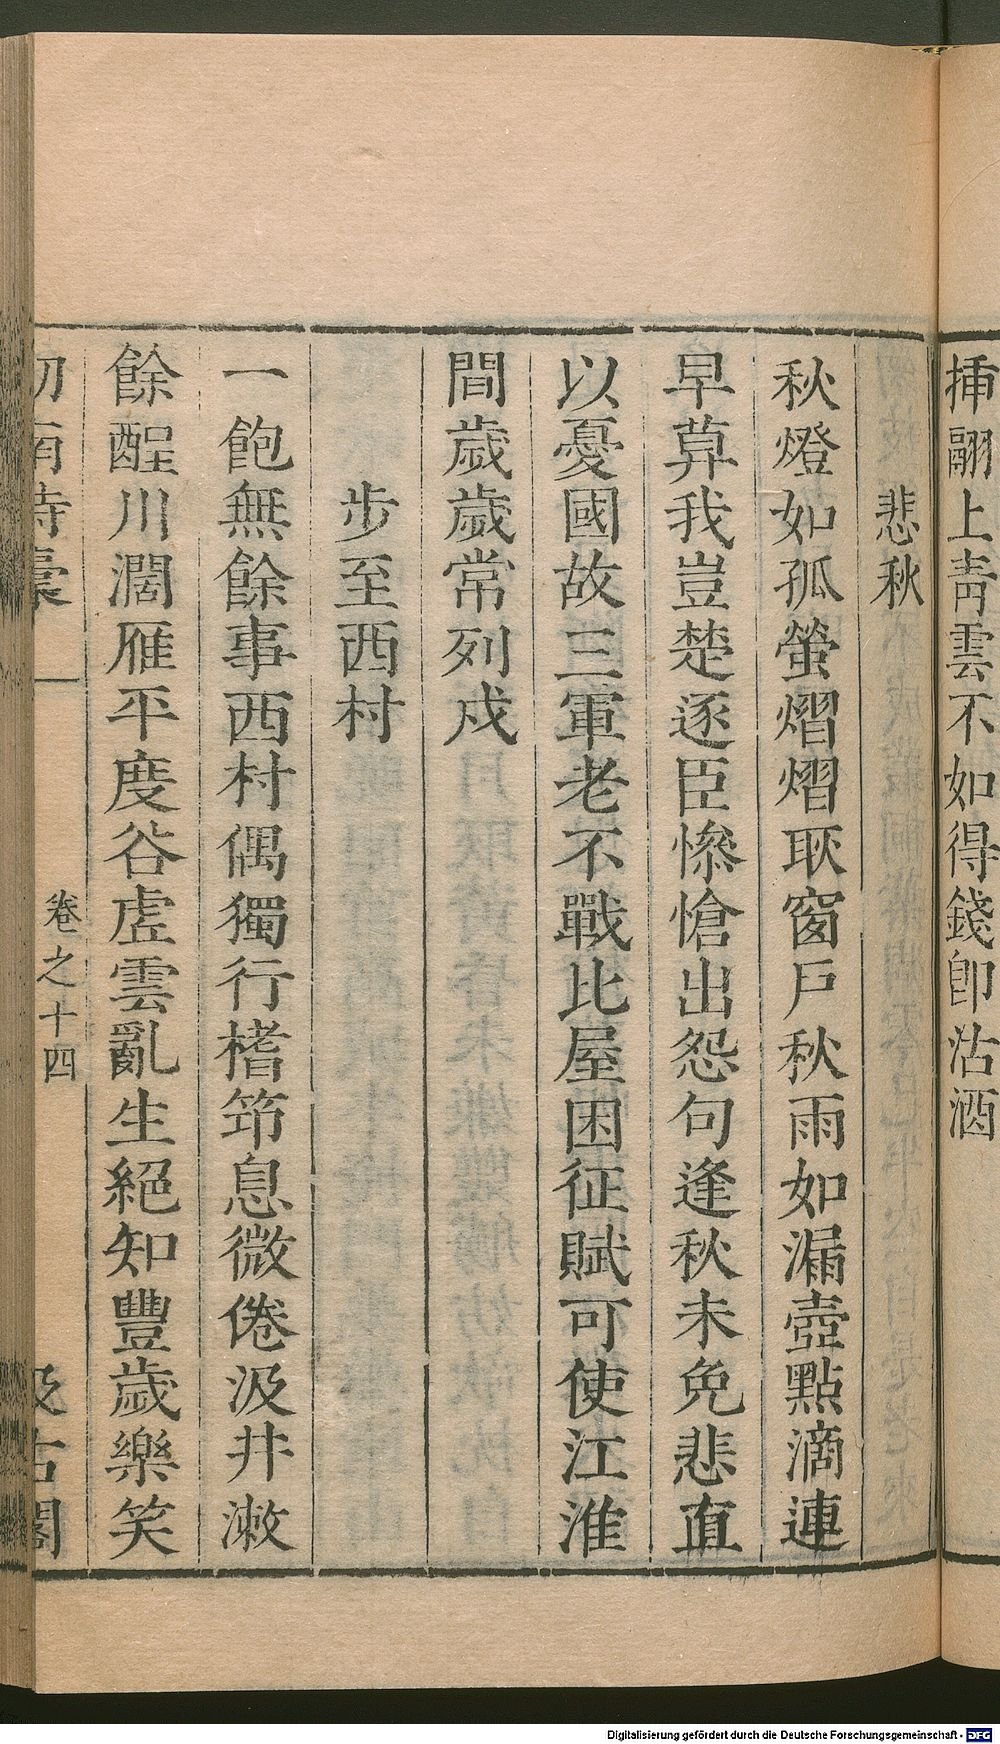 挿翮上靑雲不如得錢卽沽酒
悲秋
秋燈如孤螢熠熠耿窗戶秋雨如漏壺點滴連
早莫我豈楚逐臣慘愴出怨句逢秋未免悲直
以憂國故三軍老不戰比屋困征賦可使江淮
間歲歲常列戍
步至西村
一飽無餘事西村偶獨行榰筇息微倦汲井漱
餘酲川濶雁平度谷虛雲亂生絕知豐歲樂笑
劒南詩稾
卷之十四
汲古閣
Digitalisierung gefördert durch die Deutsche Forschungsgemeinschaft - DFG